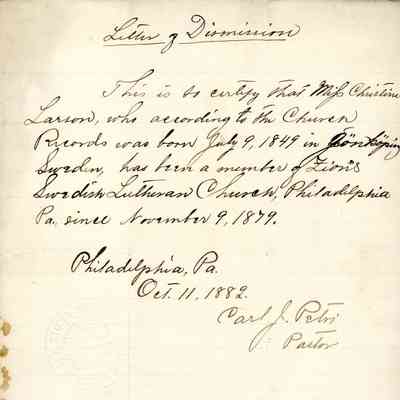 Letter of Dismission
This is to certify that Miss Christine
Larson, who according to the Church
Records was born July 9, 1849 in Jönköping
Sweden, has been a member of Zion's
Swedish Lutheran Church, Philadelphia
Pa, since November 9, 1879.
Philadelphia, Pa.
Oct. 11, 1882.
Carl J. Petri
Pastor